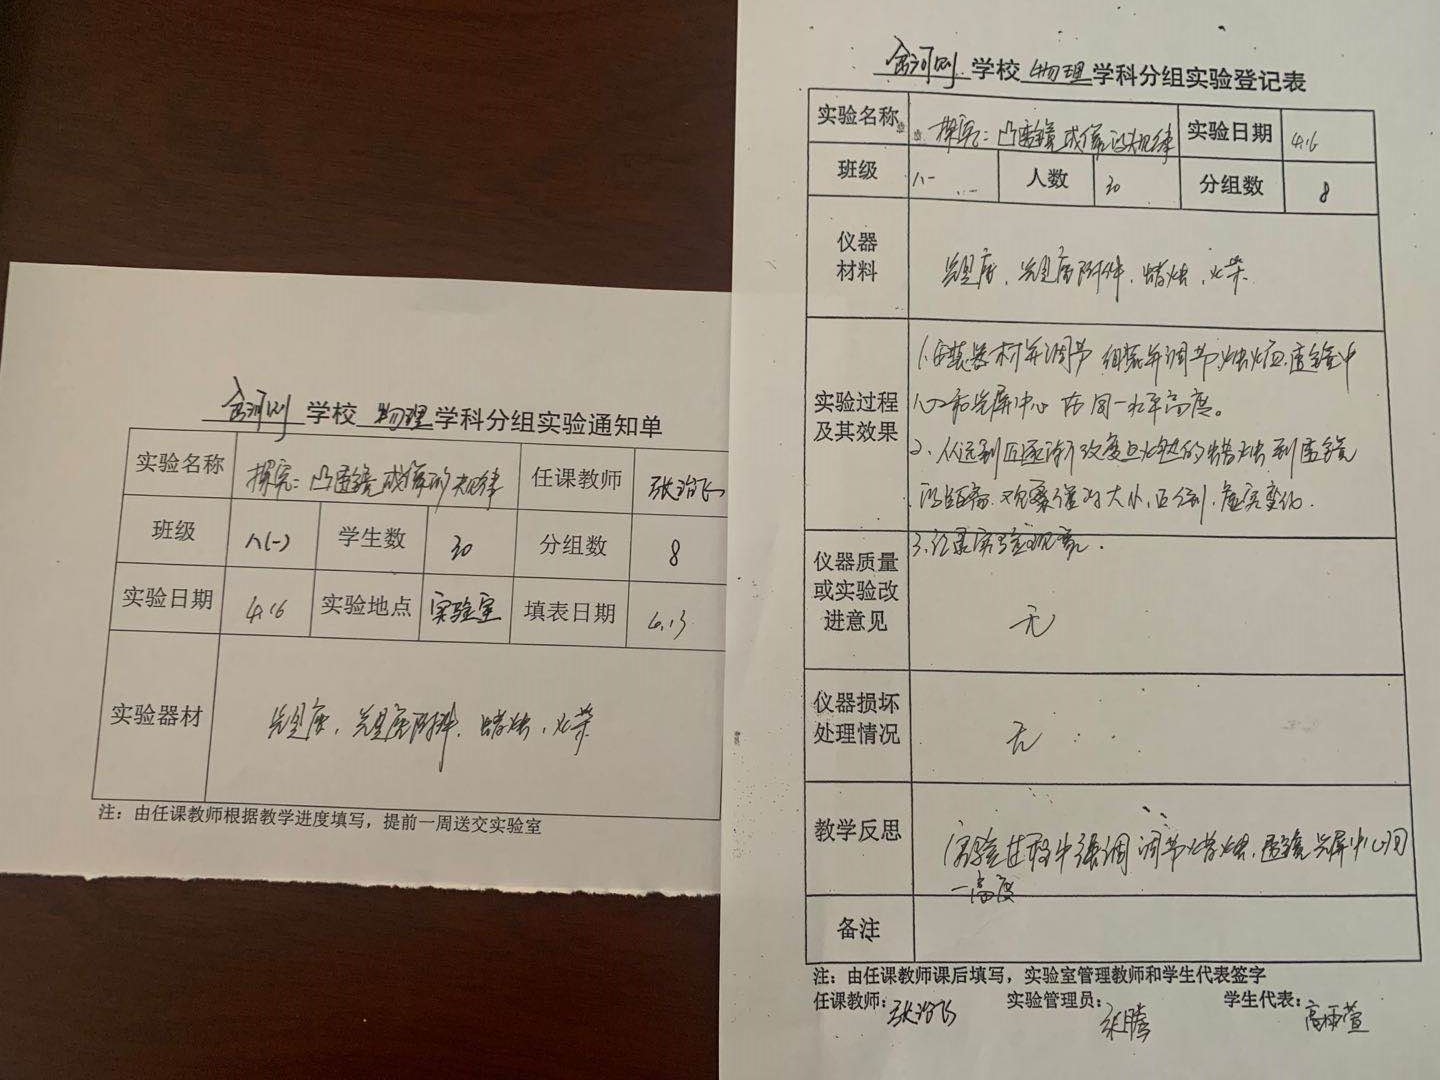 学校 物理 学科分组实验通知单
实验名称 探究:凸透镜成像的规律 任课教师
班级 八(一) 学生数 30 分组数 8
实验日期 4.16 实验地点 实验室 填表日期
实验器材 光具座、光具座附件、蜡烛、火柴
注：由任课教师根据教学进度填写，提前一周送交实验室
学校 物理 学科分组实验登记表
实验名称 探究:凸透镜成像的规律 实验日期
班级 八一 人数 30 分组数 8
仪器
材料
光具座、光具座附件、蜡烛、火柴
实验过程
及其效果
1.组装器材并调节 组装并调节烛焰、透镜中
心和光屏中心 在同一水平高度。
2、从远到近逐渐改变点燃的蜡烛到透镜
的距离,观察像的大小、正倒、虚实变化.
3.记录实验现象.
仪器质量
或实验改
进意见
无
仪器损坏
处理情况
无
教学反思
实验过程中强调 调节蜡烛、透镜光屏中心同
一高度
备注
注：由任课教师课后填写，实验室管理教师和学生代表签字
任课教师: 实验管理员: 张腾 学生代表: 高雨萱